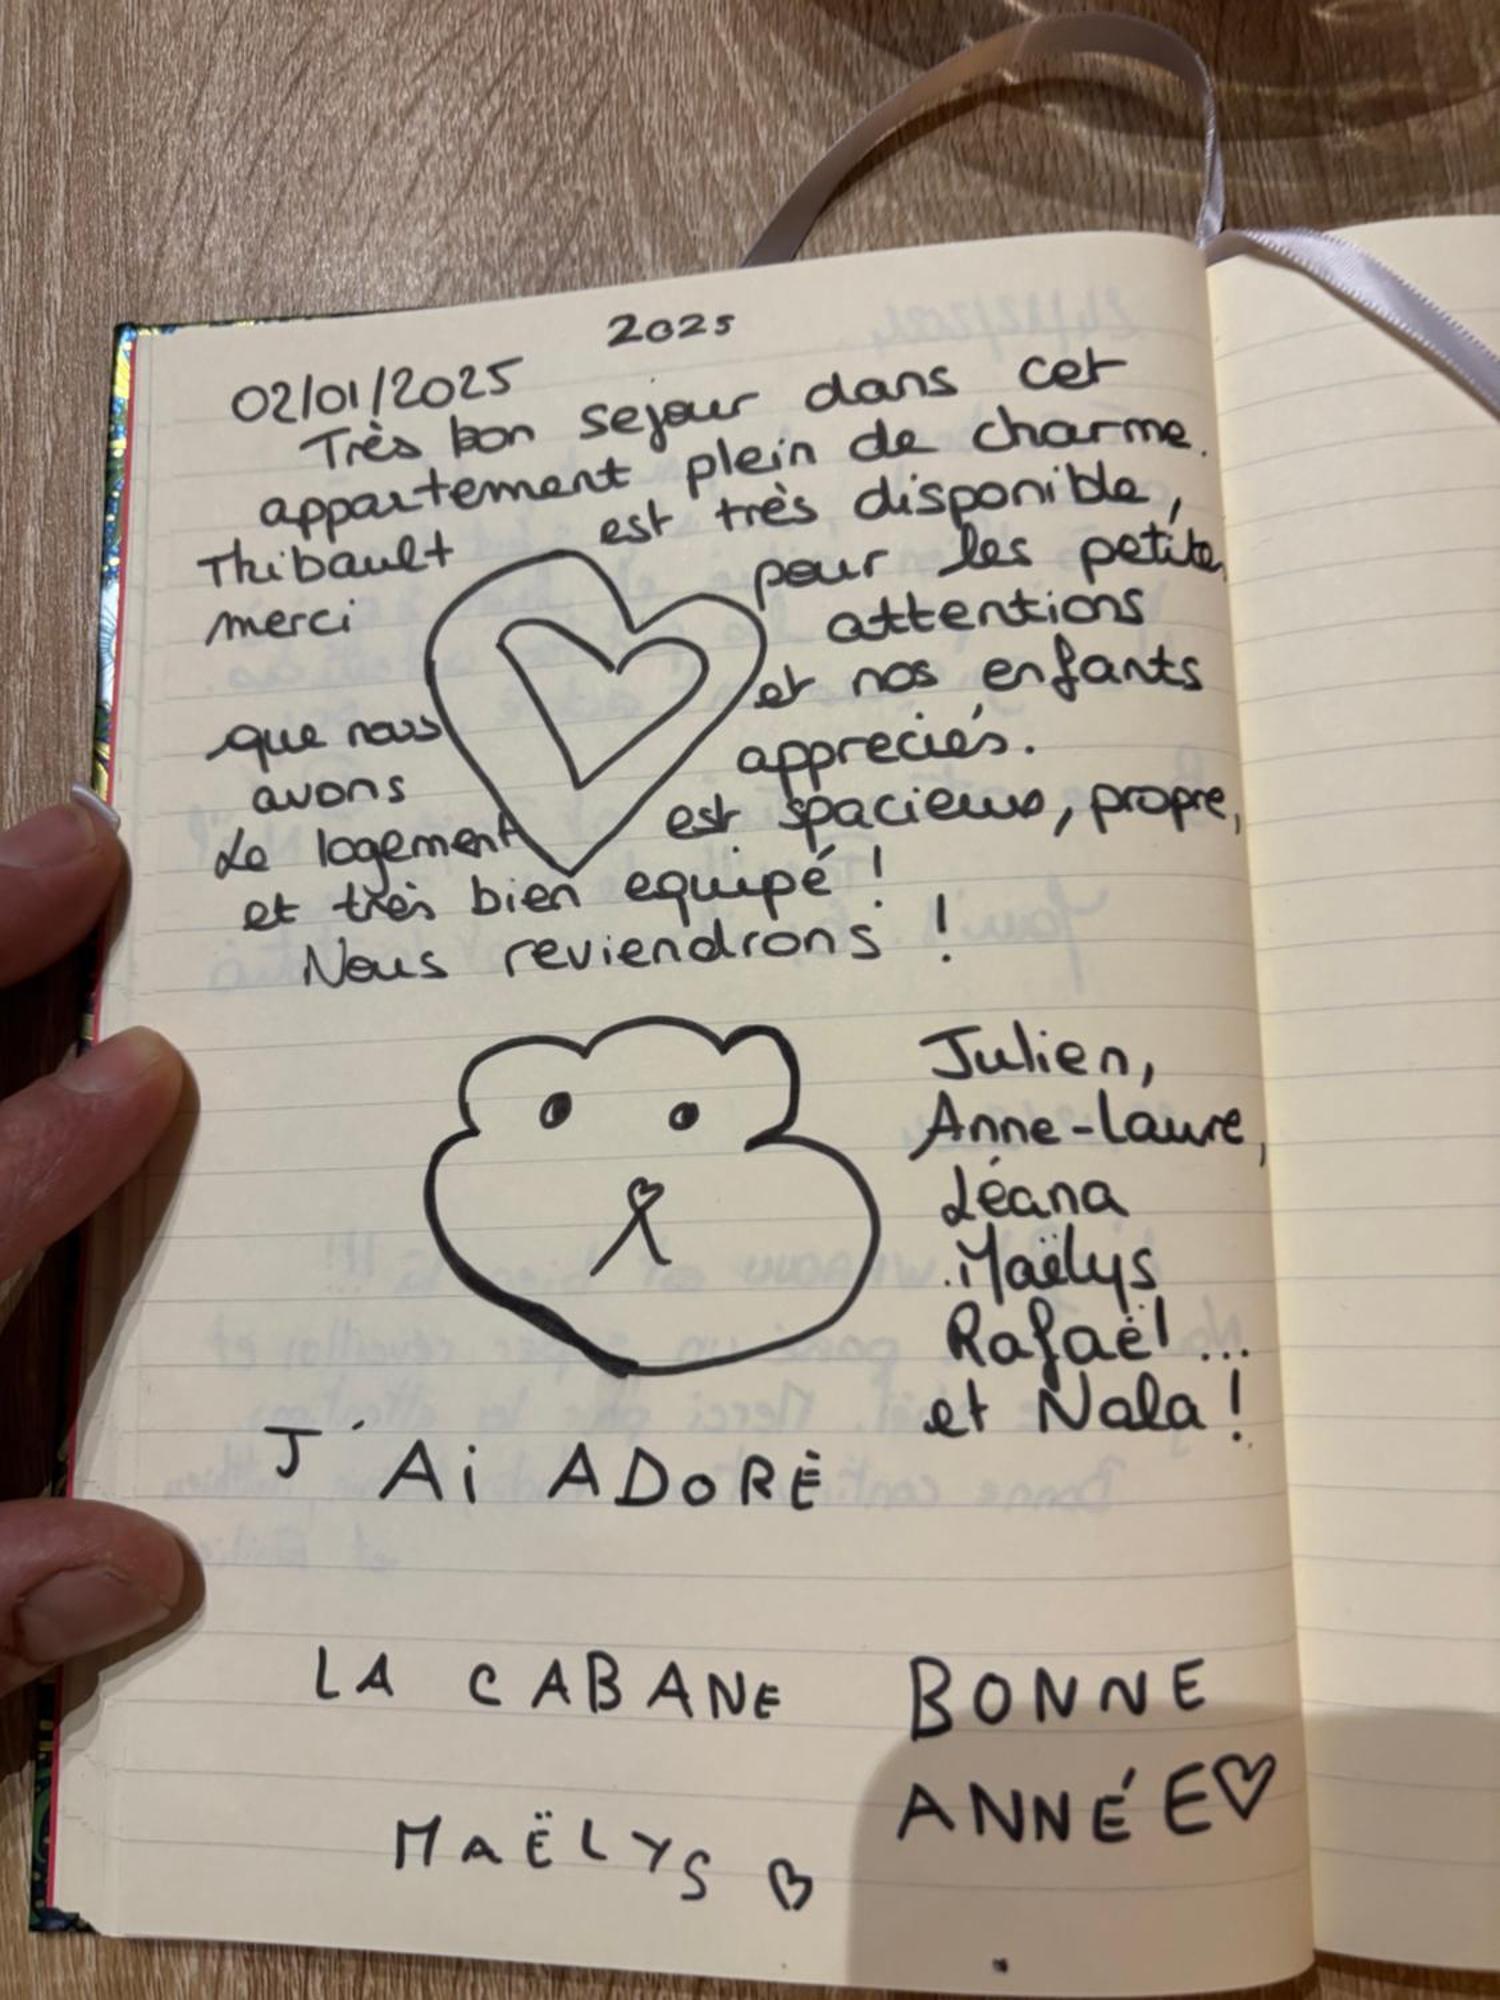 2025
02/01/2025
Très bon sejour dans cet
appartement plein de charme.
Thibault est très disponible,
merci pour les petites
attentions
et nos enfants
que nous
avons appreciés.
Le logement est spacieux, propre,
et très bien equipé !
Nous reviendrons !
Julien,
Anne-Laure,
Léana
Maëlys
Rafaël ...
et Nala !
J'Ai ADORÉ
LA CABANE
MAËLYS
BONNE
ANNÉE